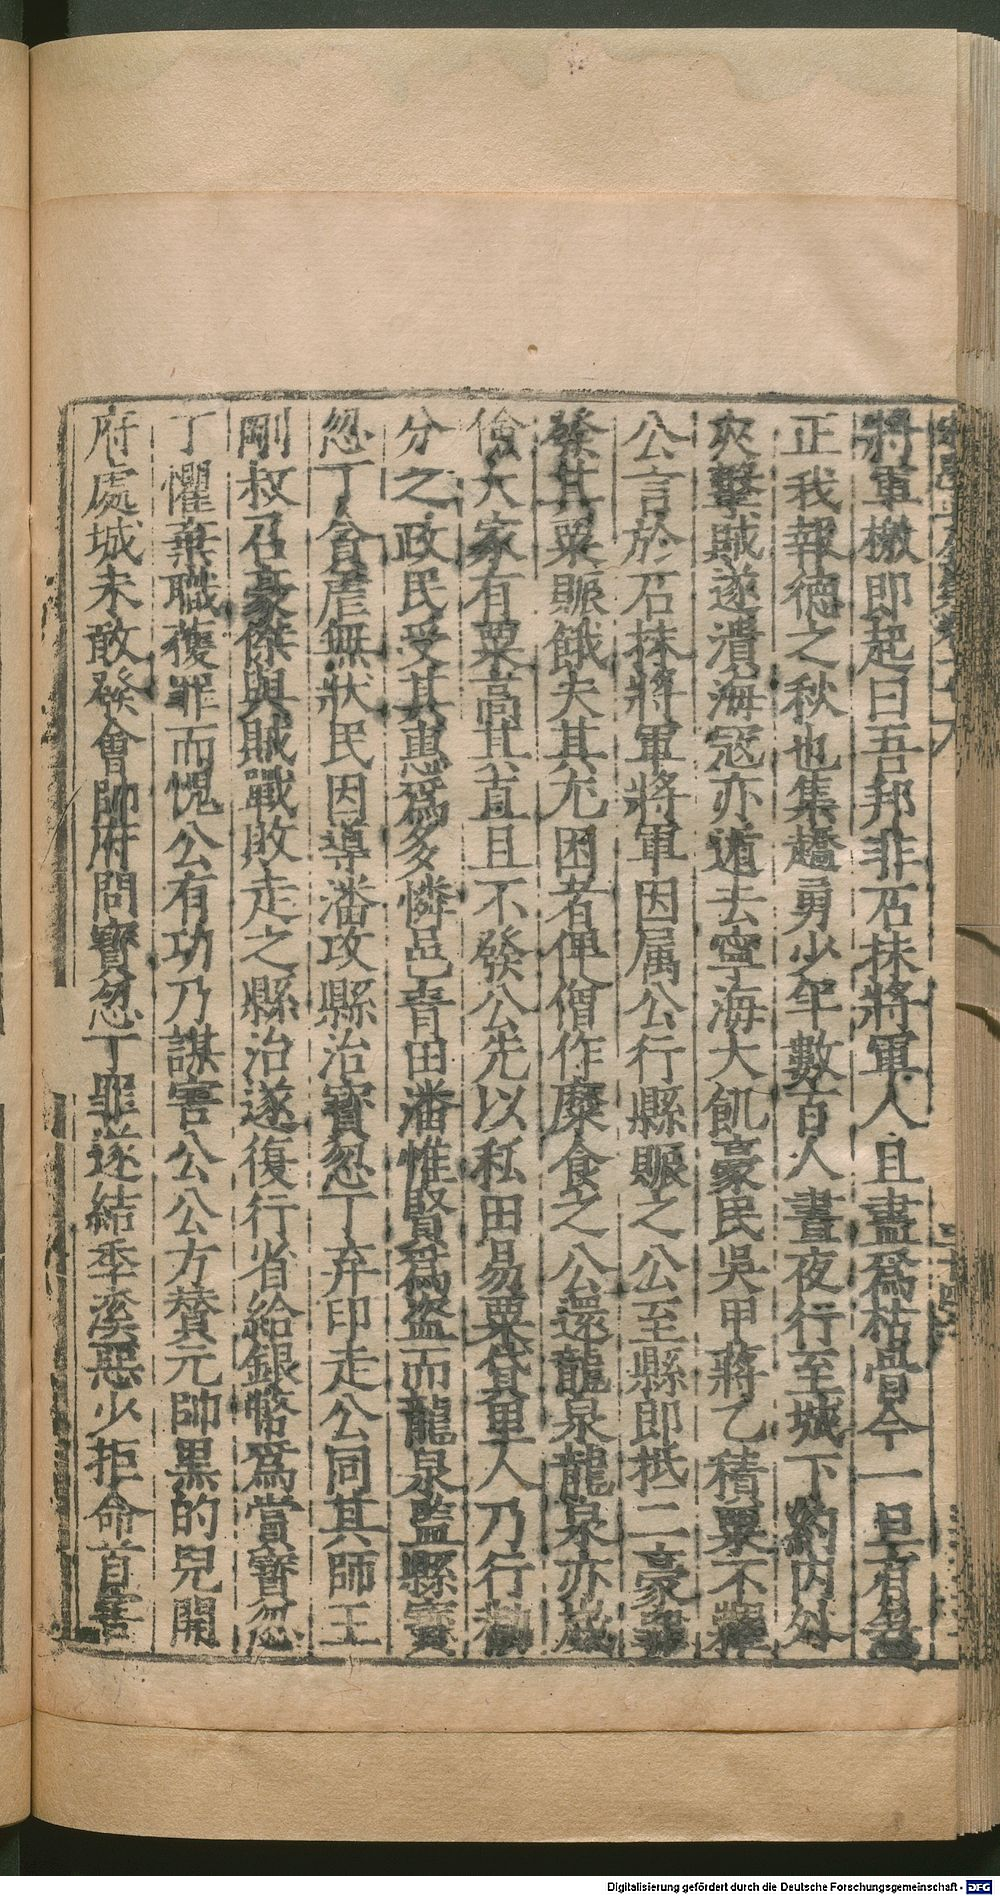 將軍檄即起曰吾邦非石抹將軍人且盡爲枯骨今一旦有急
正我報德之秋也集趫勇少年數百人晝夜行至城下約内外
夾擊賊遂潰海寇亦遁去寧海大飢豪民吳甲蔣乙積粟不糶
公言於石抹將軍將軍因属公行縣賑之公至縣即抵二豪罪
發其粟賑餓夫其尤困者俾僧作糜食之公還龍泉龍泉亦歲
儉大家有粟高其直且不發公先以私田易粟貸里人乃行勸
分之政民受其惠爲多憐邑青田潘惟賢爲盜而龍泉監縣寶
忽丁貪虐無狀民因導潘攻縣治寶忽丁弃印走公同其師王
剛叔召豪傑與賊戰敗走之縣治遂復行省給銀幣爲賞寶忽
丁懼棄職獲罪而愧公有功乃謀害公公方贊元帥黒的兒開
府處城未敢發會帥府問寶忽丁罪遂結季溪惡少拒命首害